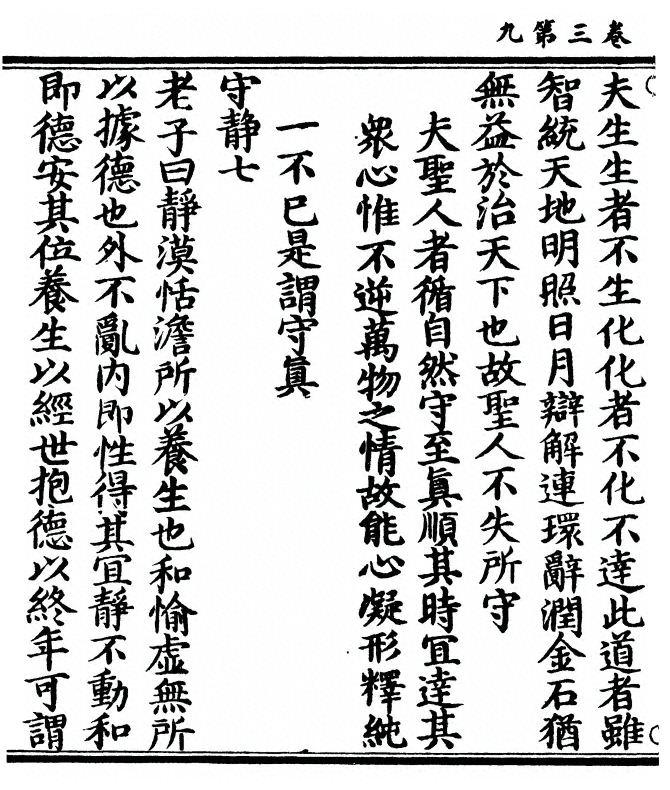 卷三第九
夫生生者不生化化者不化不達此道者雖
智統天地明照日月辯解連環辭潤金石猶
無益於治天下也故聖人不失所守
夫聖人者循自然守至眞順其時宜達其
衆心惟不逆萬物之情故能心凝形釋純
一不已是謂守眞
守静七
老子曰靜漠恬澹所以養生也和愉虛無所
以據德也外不亂内即性得其宜靜不動和
即德安其位養生以經世抱德以終年可謂